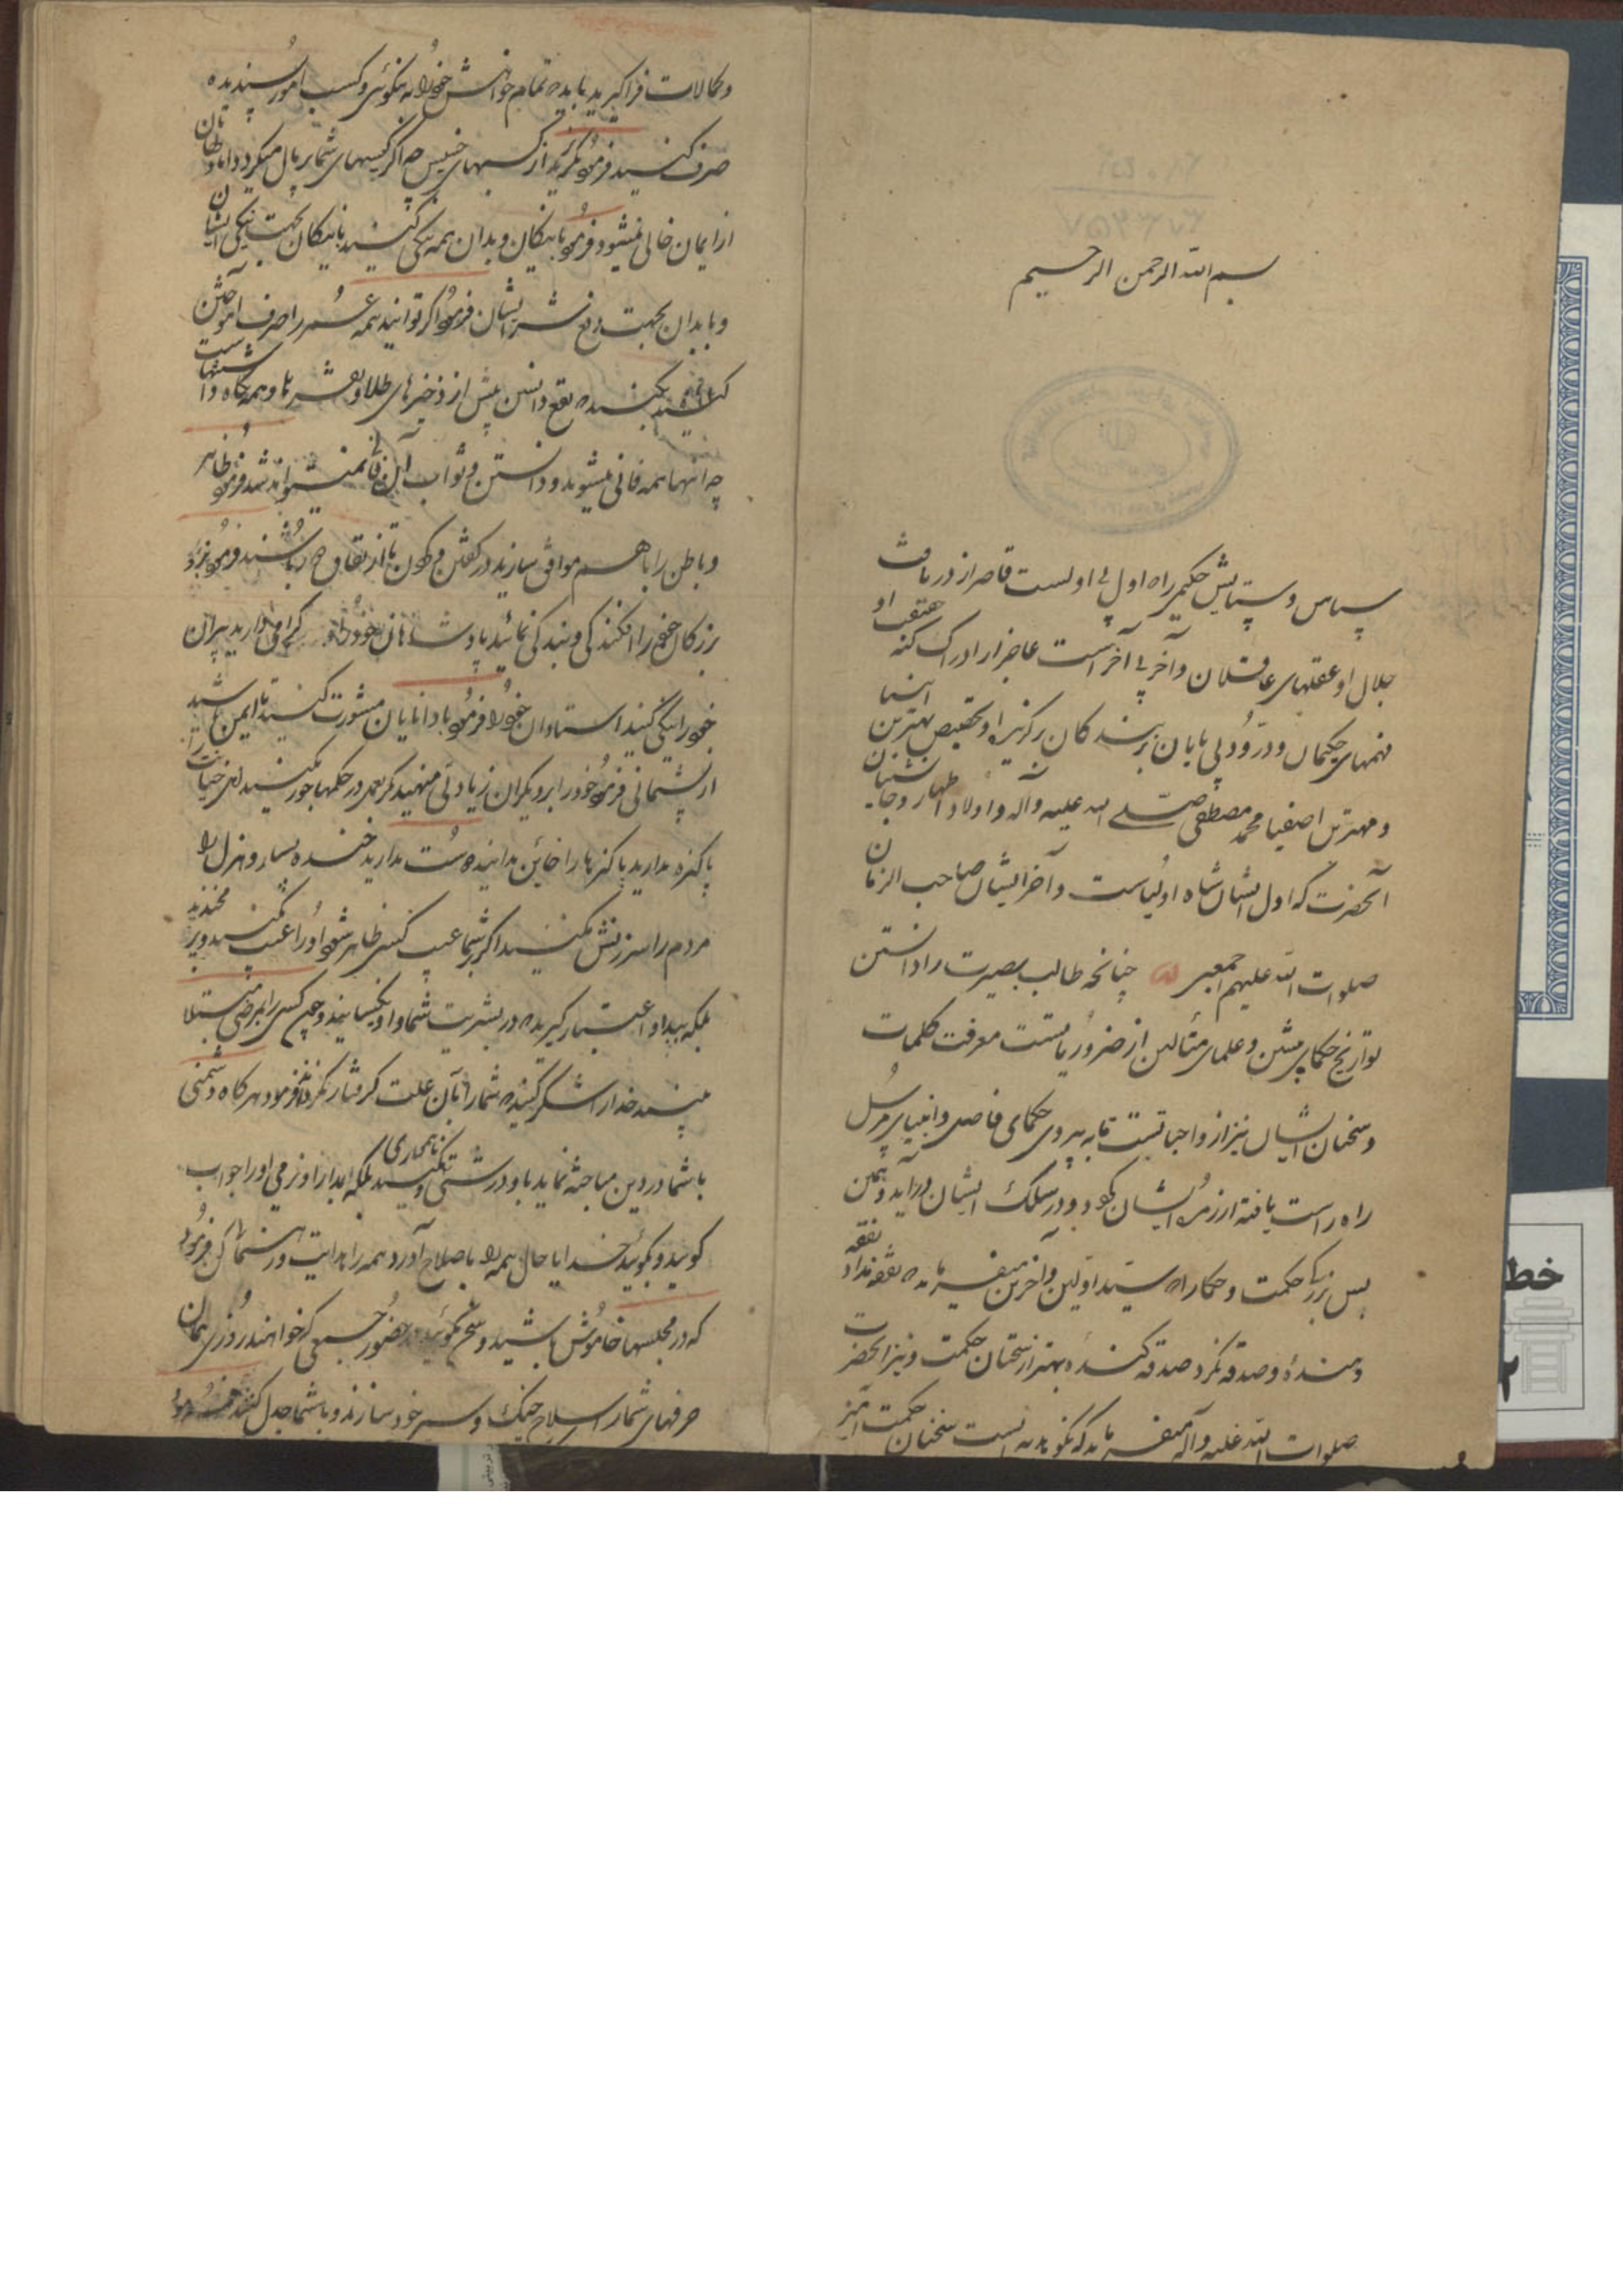 بسم الله الرحمن الرحیم
سپاس و ستایش حکیمی را که اول بی اولست قاصر از دریافت
جلال او عقلهای عاقلان و آخر بی آخر است عاجز از ادراک کنه حقیقت او
فهمهای حکیمان و درود بی پایان بر بندگان برگزیده او بتخصیص بهترین انبیا
و مهترین اصفیا محمد مصطفی صلی الله علیه وآله و اولاد اطهار و جانشینان
آنحضرت که اول ایشان شاه اولیاست و آخر ایشان صاحب الزمان
صلوات الله علیهم اجمعین چنانچه طالب بصیرت را دانستن
تواریخ حکمای پیشین و علمای متألهین از ضروریاتست معرفت کلمات
و سخنان ایشان نیز از واجباتست تا به پیروی حکمای فاضل و انبیای مرسل
راه راست یافته از زمره ایشان گردد و در سلک ایشان درآید و همین
بس بزرگی حکمت و حکما را که سید اولین و آخرین میفرماید که نفقه نداد نفقه
دهنده و صدقه نکرد صدقه کننده بهتر از سخنان حکمت و نیز آنحضرت
صلوات الله علیه وآله میفرماید که نکو هدیه ایست سخنان حکمت آمیز
و کمالات فراگیرید باید که تمام خواهش خود را به نیکوئی و کسب امور پسندیده
صرف کنید فرمود بگریزید از کسبهای خسیس چه اگر کیسهای شما پر مال میگردد اما دلهاتان
از ایمان خالی میشود فرمود با نیکان و بدان همه نیکی کنید با نیکان بجهت نیکی ایشان
و با بدان بجهت دفع شر ایشان فرمود اگر توانید همه عمر را صرف آموختن
کنید بکنید که نفع دانش بیش از ذخیرهای طلا و نقره ها و همه نگاه داشتنهاست
چه اینها همه فانی میشوند و دانستن و ثواب آن فانی نمیتواند شد فرمود ظاهر
و باطن را با هم موافق سازید در گفتن و کردن تا از نفاق دور باشید فرمود نزد
بزرگان خود را افکندگی و بندگی نمائید پادشاهان خود را گرامی دارید پیران
خود را نیکی کنید استادان خود را فرمود با دانایان مشورت کنید تا ایمن باشید
از پشیمانی فرمود خود را بر دیگران زیادتی منهید مگر بعمل و در حکمها جور مکنید خیانت را
پاکیزه مدارید پاکیزها را خائن مدانید دوست مدارید خنده بسیار و هزل را
مردم را سرزنش مکنید اگر بر شما عیب کسی ظاهر شود او را غیبت مکنید و بر او مخندید
بلکه به بد او اعتبار گیرید که در بشریت شما و او یکسانید و چون کسی را بمرضی مبتلا
ببینید خدا را شکر کنید که شما را بآن علت گرفتار نکرده فرمود هرگاه دشمنی
با شما در دین مباحثه نماید با او درشتی و ناهمواری مکنید بلکه بمدارا و نرمی او را جواب
گوئید و بگوئید خدایا حال همه را باصلاح آور و همه را هدایت و رهنمائی کن فرمود
که در مجلسها خاموش باشید و سخن مگوئید در حضور جمعی که خواهند روزی همان
حرفهای شما را سلاح جنگ و سپر خود سازند و با شما جدل کنند فرمود
خط
۲